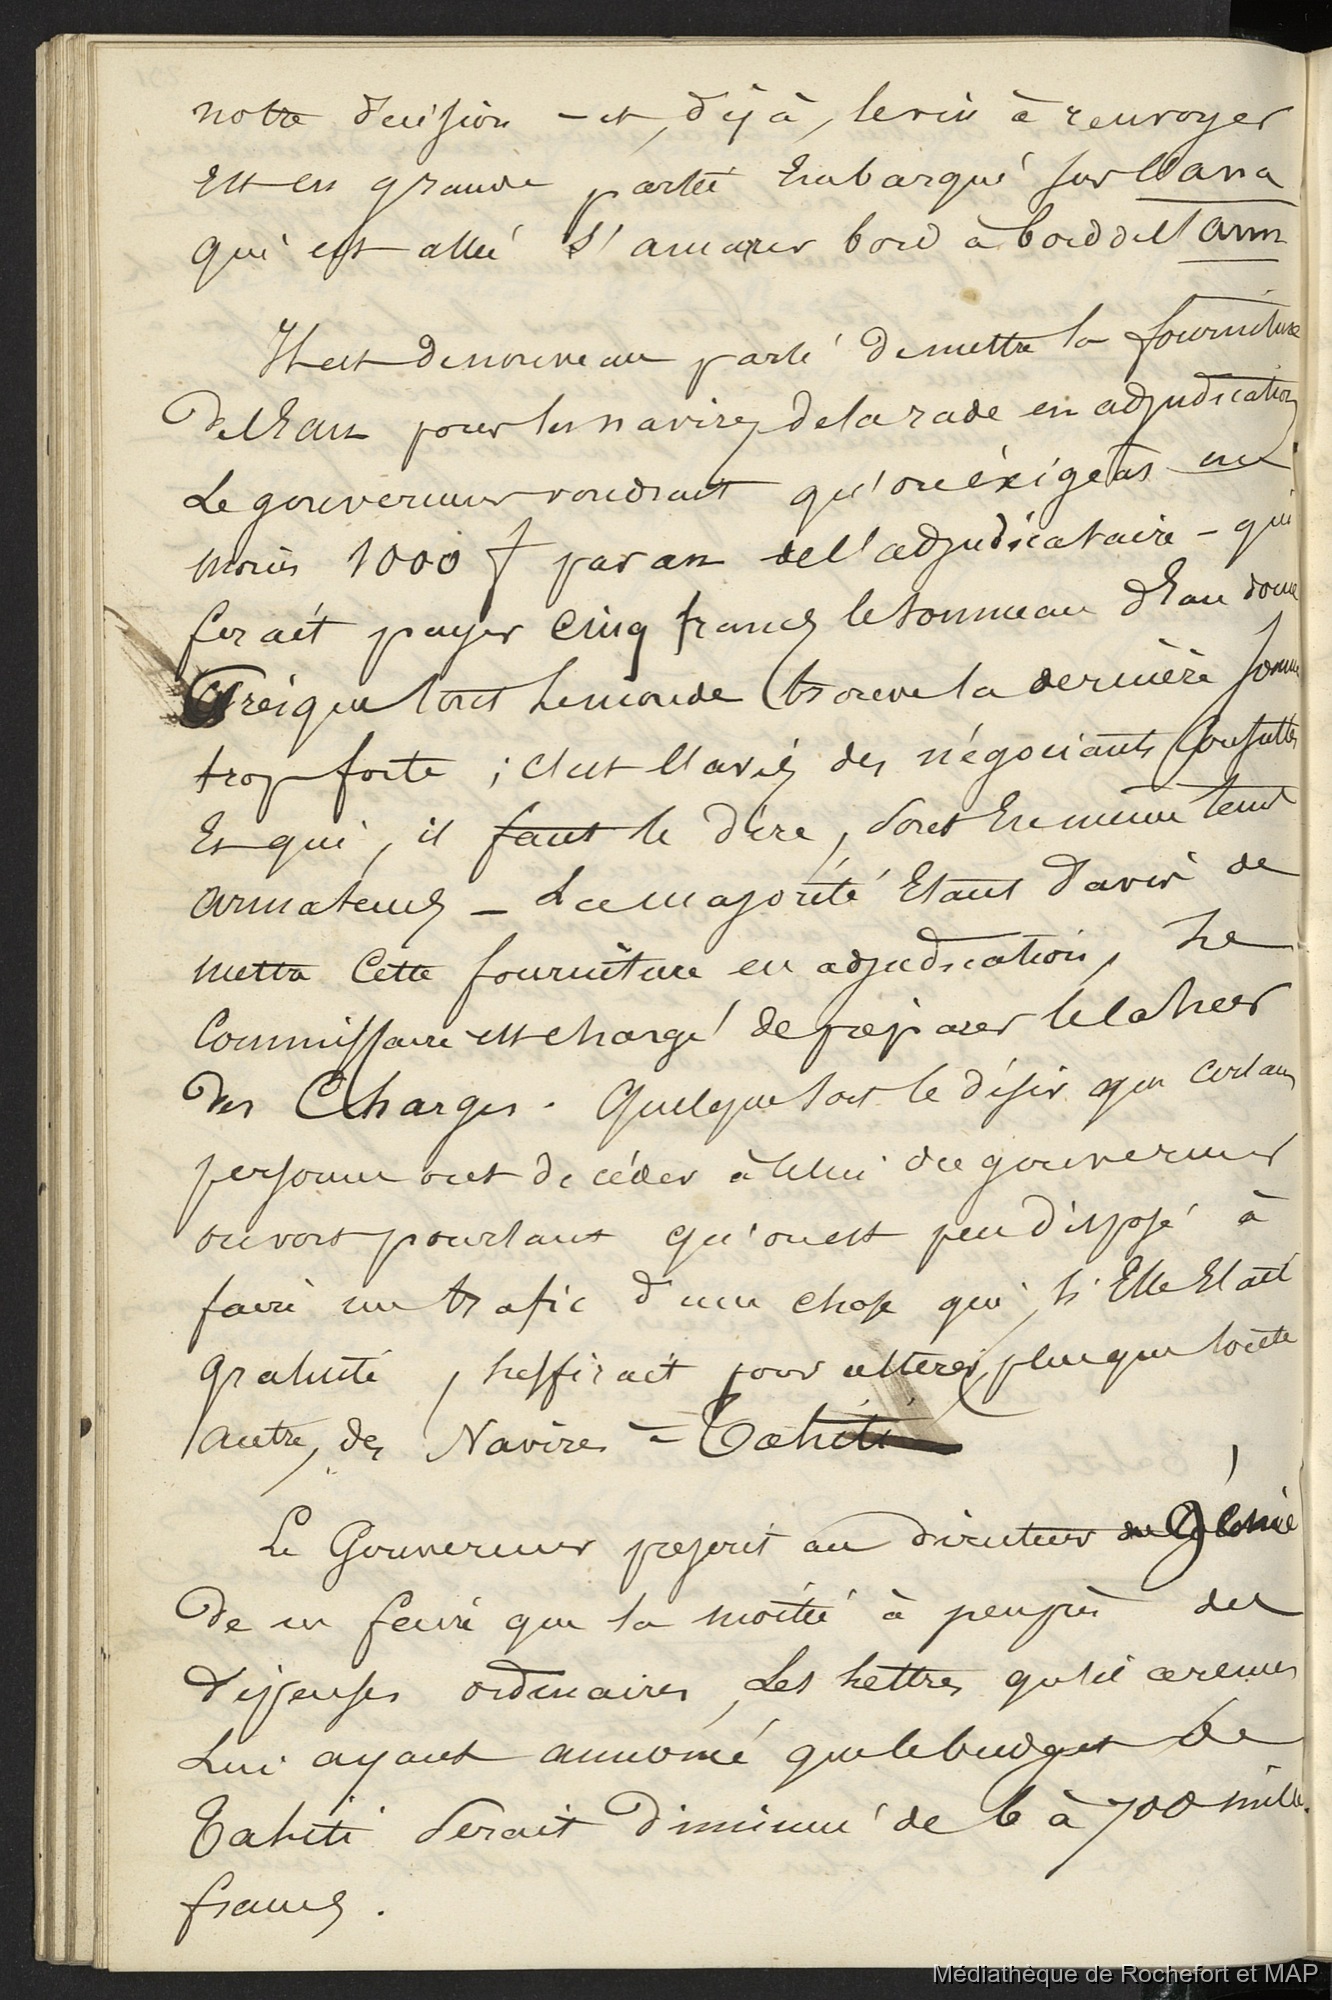 notre décision – et, déjà, le vin à renvoyer
Est en grande partie Embarqué sur l'ana
qui est allé s'amarrer bord à bord de l'
Il est de nouveau parlé de mettre la fourniture
De l'Eau pour les navires de la rade en adjudication
Le gouverneur voudrait qu'on éxigeât au
moins 1000 f par an de l'adjudicataire – qui
ferait payer cinq francs le tonneau d'Eau douce
Presque tout le monde trouve la dernière somme
trop forte ; c'est l'avis des négociants consultés
Et qui, il faut le dire, sont En même tems
armateurs – La majorité Etant d'avis de
mettre Cette fourniture en adjudication, Le
Commissaire est chargé de préparer le Cahier
Des Charges. Quelque soit le désir que certaines
personnes ont de céder à celui du gouverneur
on voit pourtant qu'on est peu disposé à
faire un trafic d'une chose qui, si Elle Etait
gratuite, suffirait pour attirer, plus que toute
autre, des Navires à Tahiti
Le Gouverneur prescrit au directeur du Génie
De ne faire que la moitié à peu près des
dépenses ordinaires, Les lettres qu'il a reçues
Lui ayant annoncé que le budget de
Tahiti serait Diminué de 6 à 700 mille
francs.
Médiathèque de Rochefort et MAP